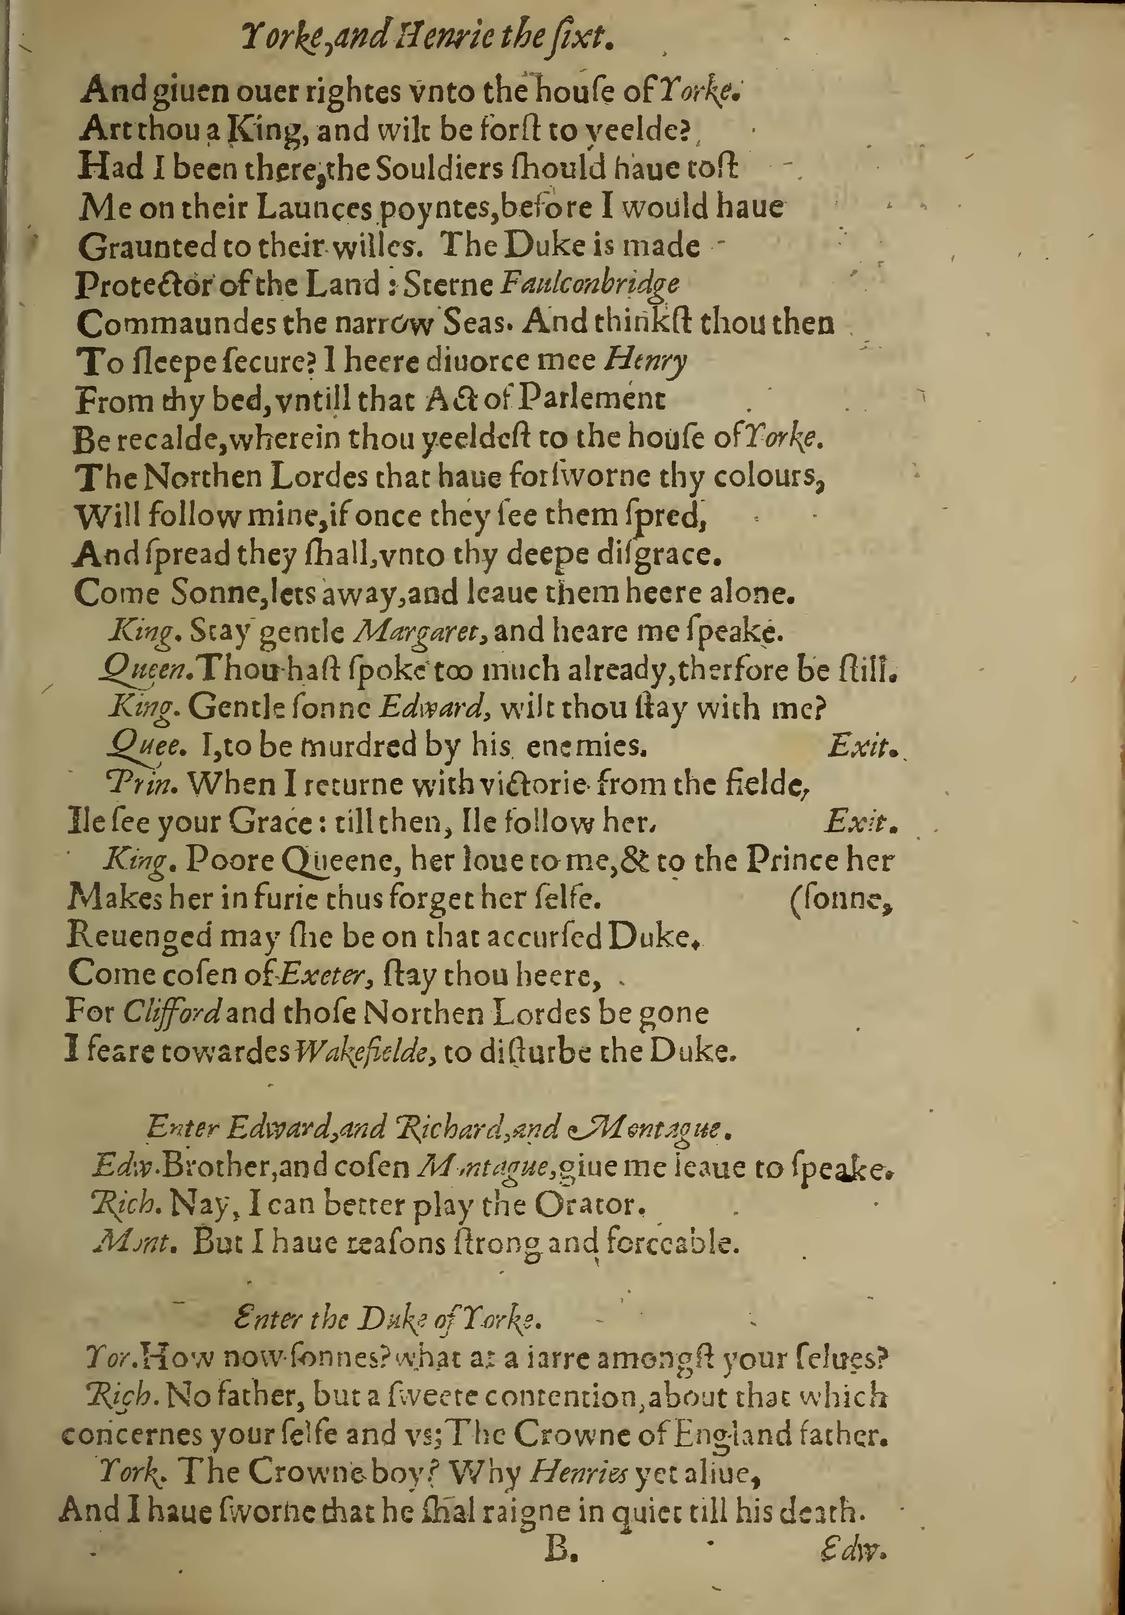 Yorke,and Henrie the ſixt.
And giuen ouer rightes vnto the houſe of Yorke.
Art thou a King, and wilt be forſt to yeelde?
Had I been there,the Souldiers ſhould haue toſt
Me on their Launces poyntes,before I would haue
Graunted to their willes. The Duke is made
Protector of the Land : Sterne Faulconbridge
Commaundes the narrow Seas. And thinkſt thou then
To ſleepe ſecure? I heere diuorce mee Henry
From thy bed,vntill that Act of Parlement
Be recalde,wherein thou yeeldeſt to the houſe of Yorke.
The Northen Lordes that haue forſworne thy colours,
Will follow mine,if once they ſee them ſpred,
And ſpread they ſhall,vnto thy deepe diſgrace.
Come Sonne,lets away,and leaue them heere alone.
King. Stay gentle Margaret, and heare me ſpeake.
Queen. Thou haſt ſpoke too much already,therfore be ſtill.
King. Gentle ſonne Edward, wilt thou ſtay with me?
Quee. I,to be murdred by his enemies. Exit.
Prin. When I returne with victorie from the fielde,
Ile ſee your Grace : till then, Ile follow her. Exit.
King. Poore Queene, her loue to me,& to the Prince her
Makes her in furie thus forget her ſelfe. (ſonne,
Reuenged may ſhe be on that accurſed Duke.
Come coſen of Exeter, ſtay thou heere,
For Clifford and thoſe Northen Lordes be gone
I feare towardes Wakefielde, to diſturbe the Duke.
Enter Edward,and Richard,and Montague.
Edw. Brother,and coſen Montague,giue me leaue to ſpeake.
Rich. Nay, I can better play the Orator.
Mont. But I haue reaſons ſtrong and forceable.
Enter the Duke of Yorke.
Yor. How now ſonnes? what at a iarre amongſt your ſelues?
Rich. No father, but a ſweete contention,about that which
concernes your ſelfe and vs; The Crowne of England father.
York. The Crowne boy? Why Henries yet aliue,
And I haue ſworne that he ſhal raigne in quiet till his death.
B. Edw.